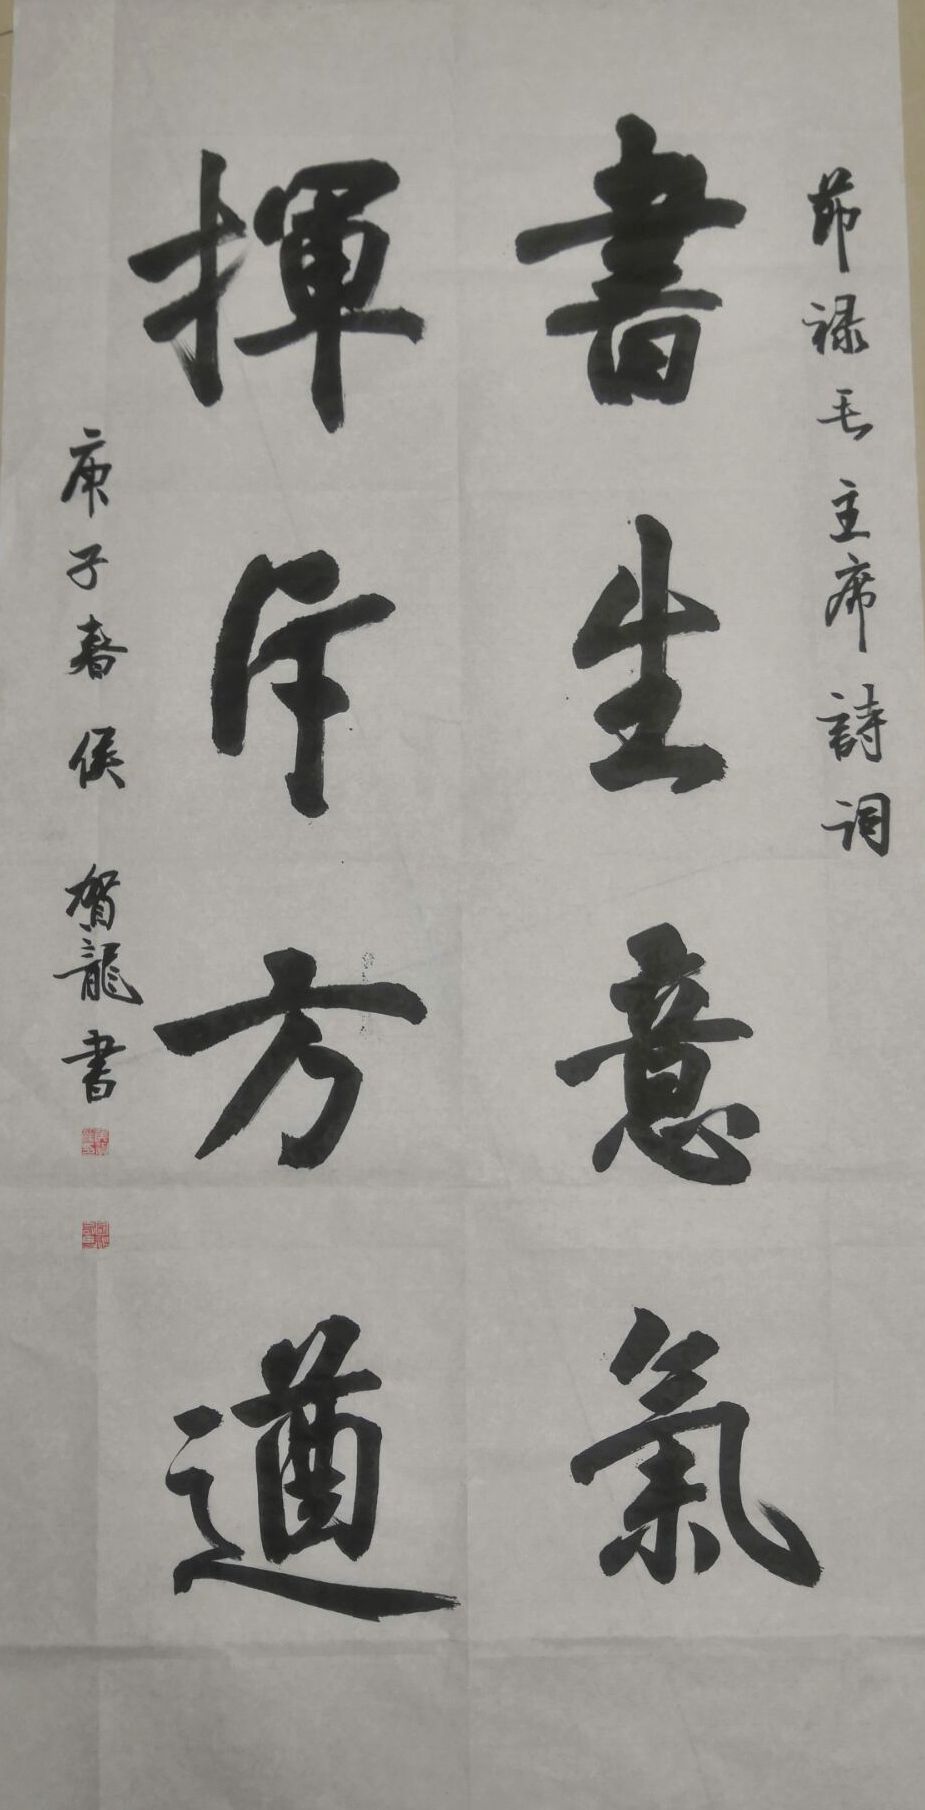 節禄毛主席詩词
書生意氣
揮斥方遒
庚子春侯賀龍書